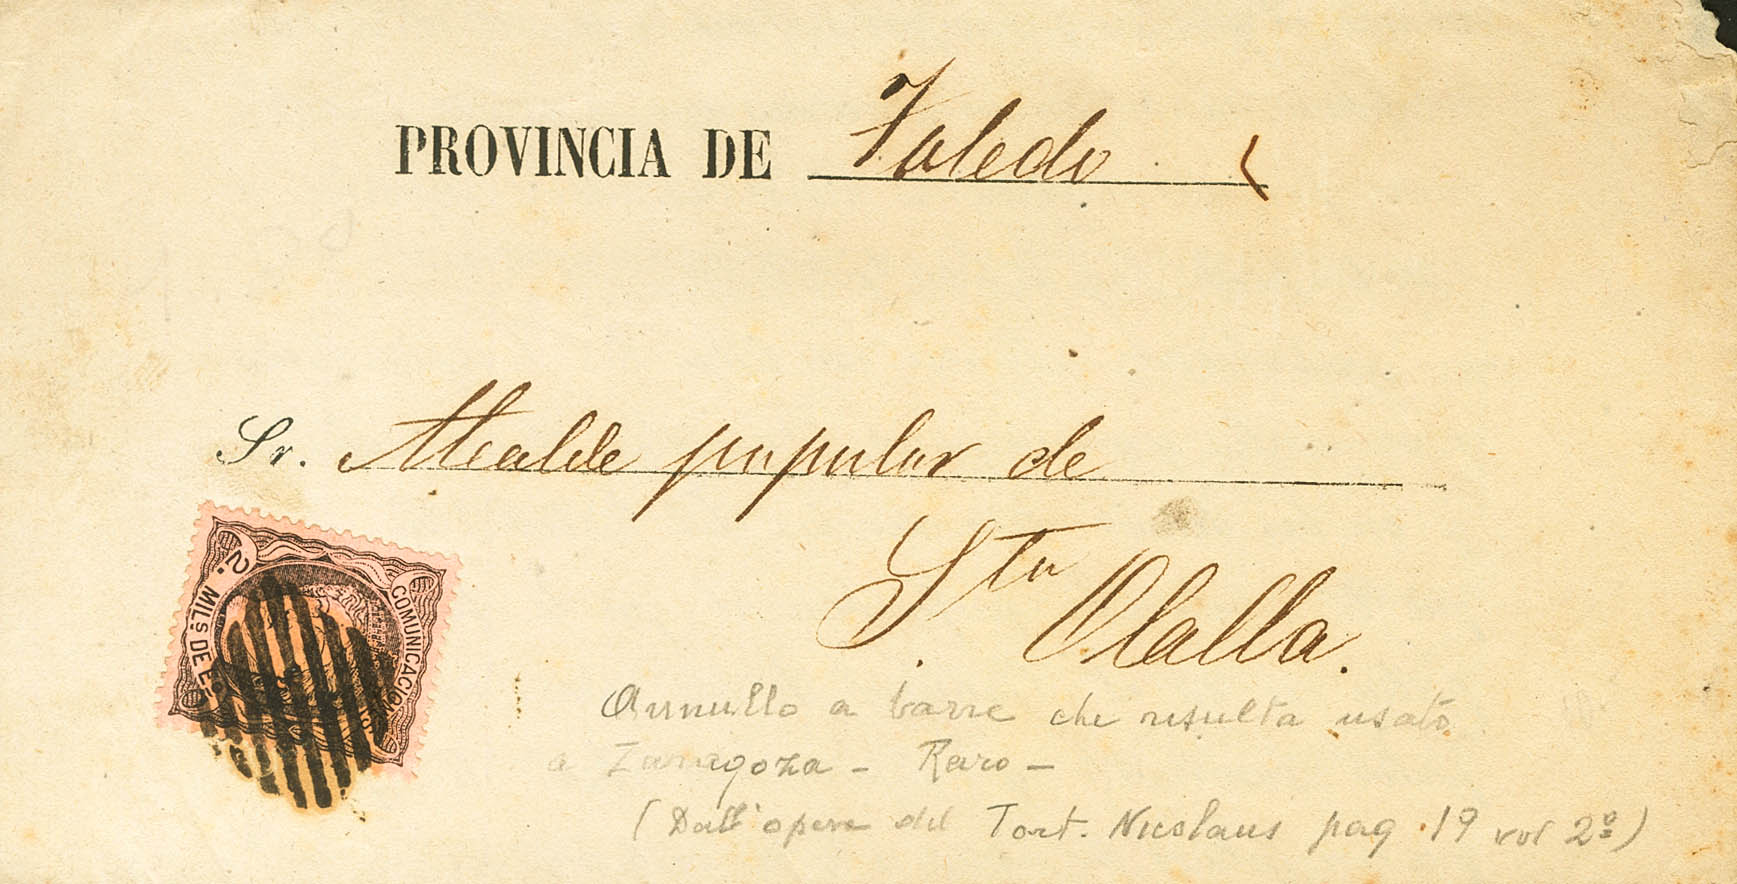 PROVINCIA DE Toledo
Sr. Alcalde popular de
Sta Olalla.
2. MILS DE E
COMUNICACION
Annullo a barre che risulta usato
a Zaragoza - Raro -
(Dall'opera del Tort. Nicolaus pag. 19 vol 2º)